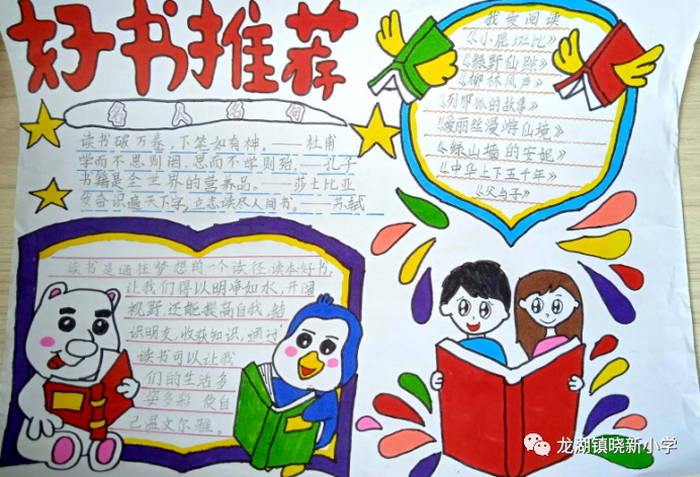 好书推荐
名人名句
读书破万卷,下笔如有神。——杜甫
学而不思则罔,思而不学则殆。——孔子
书籍是全世界的营养品。——莎士比亚
发奋识遍天下字,立志读尽人间书。——苏轼
我爱阅读
《小屁孩日记》
《绿野仙踪》
《柳林风声》
《列那狐的故事》
《爱丽丝漫游仙境》
《绿山墙的安妮》
《中华上下五千年》
《父与子》
读书是通往梦想的一个途径,读本好书,
让我们得以明净如水,开阔
视野,还能提高自我,结
识朋友,收获知识,通过
读书可以让我
们的生活多
姿多彩 使自
己温文尔雅。
龙湖镇晓新小学